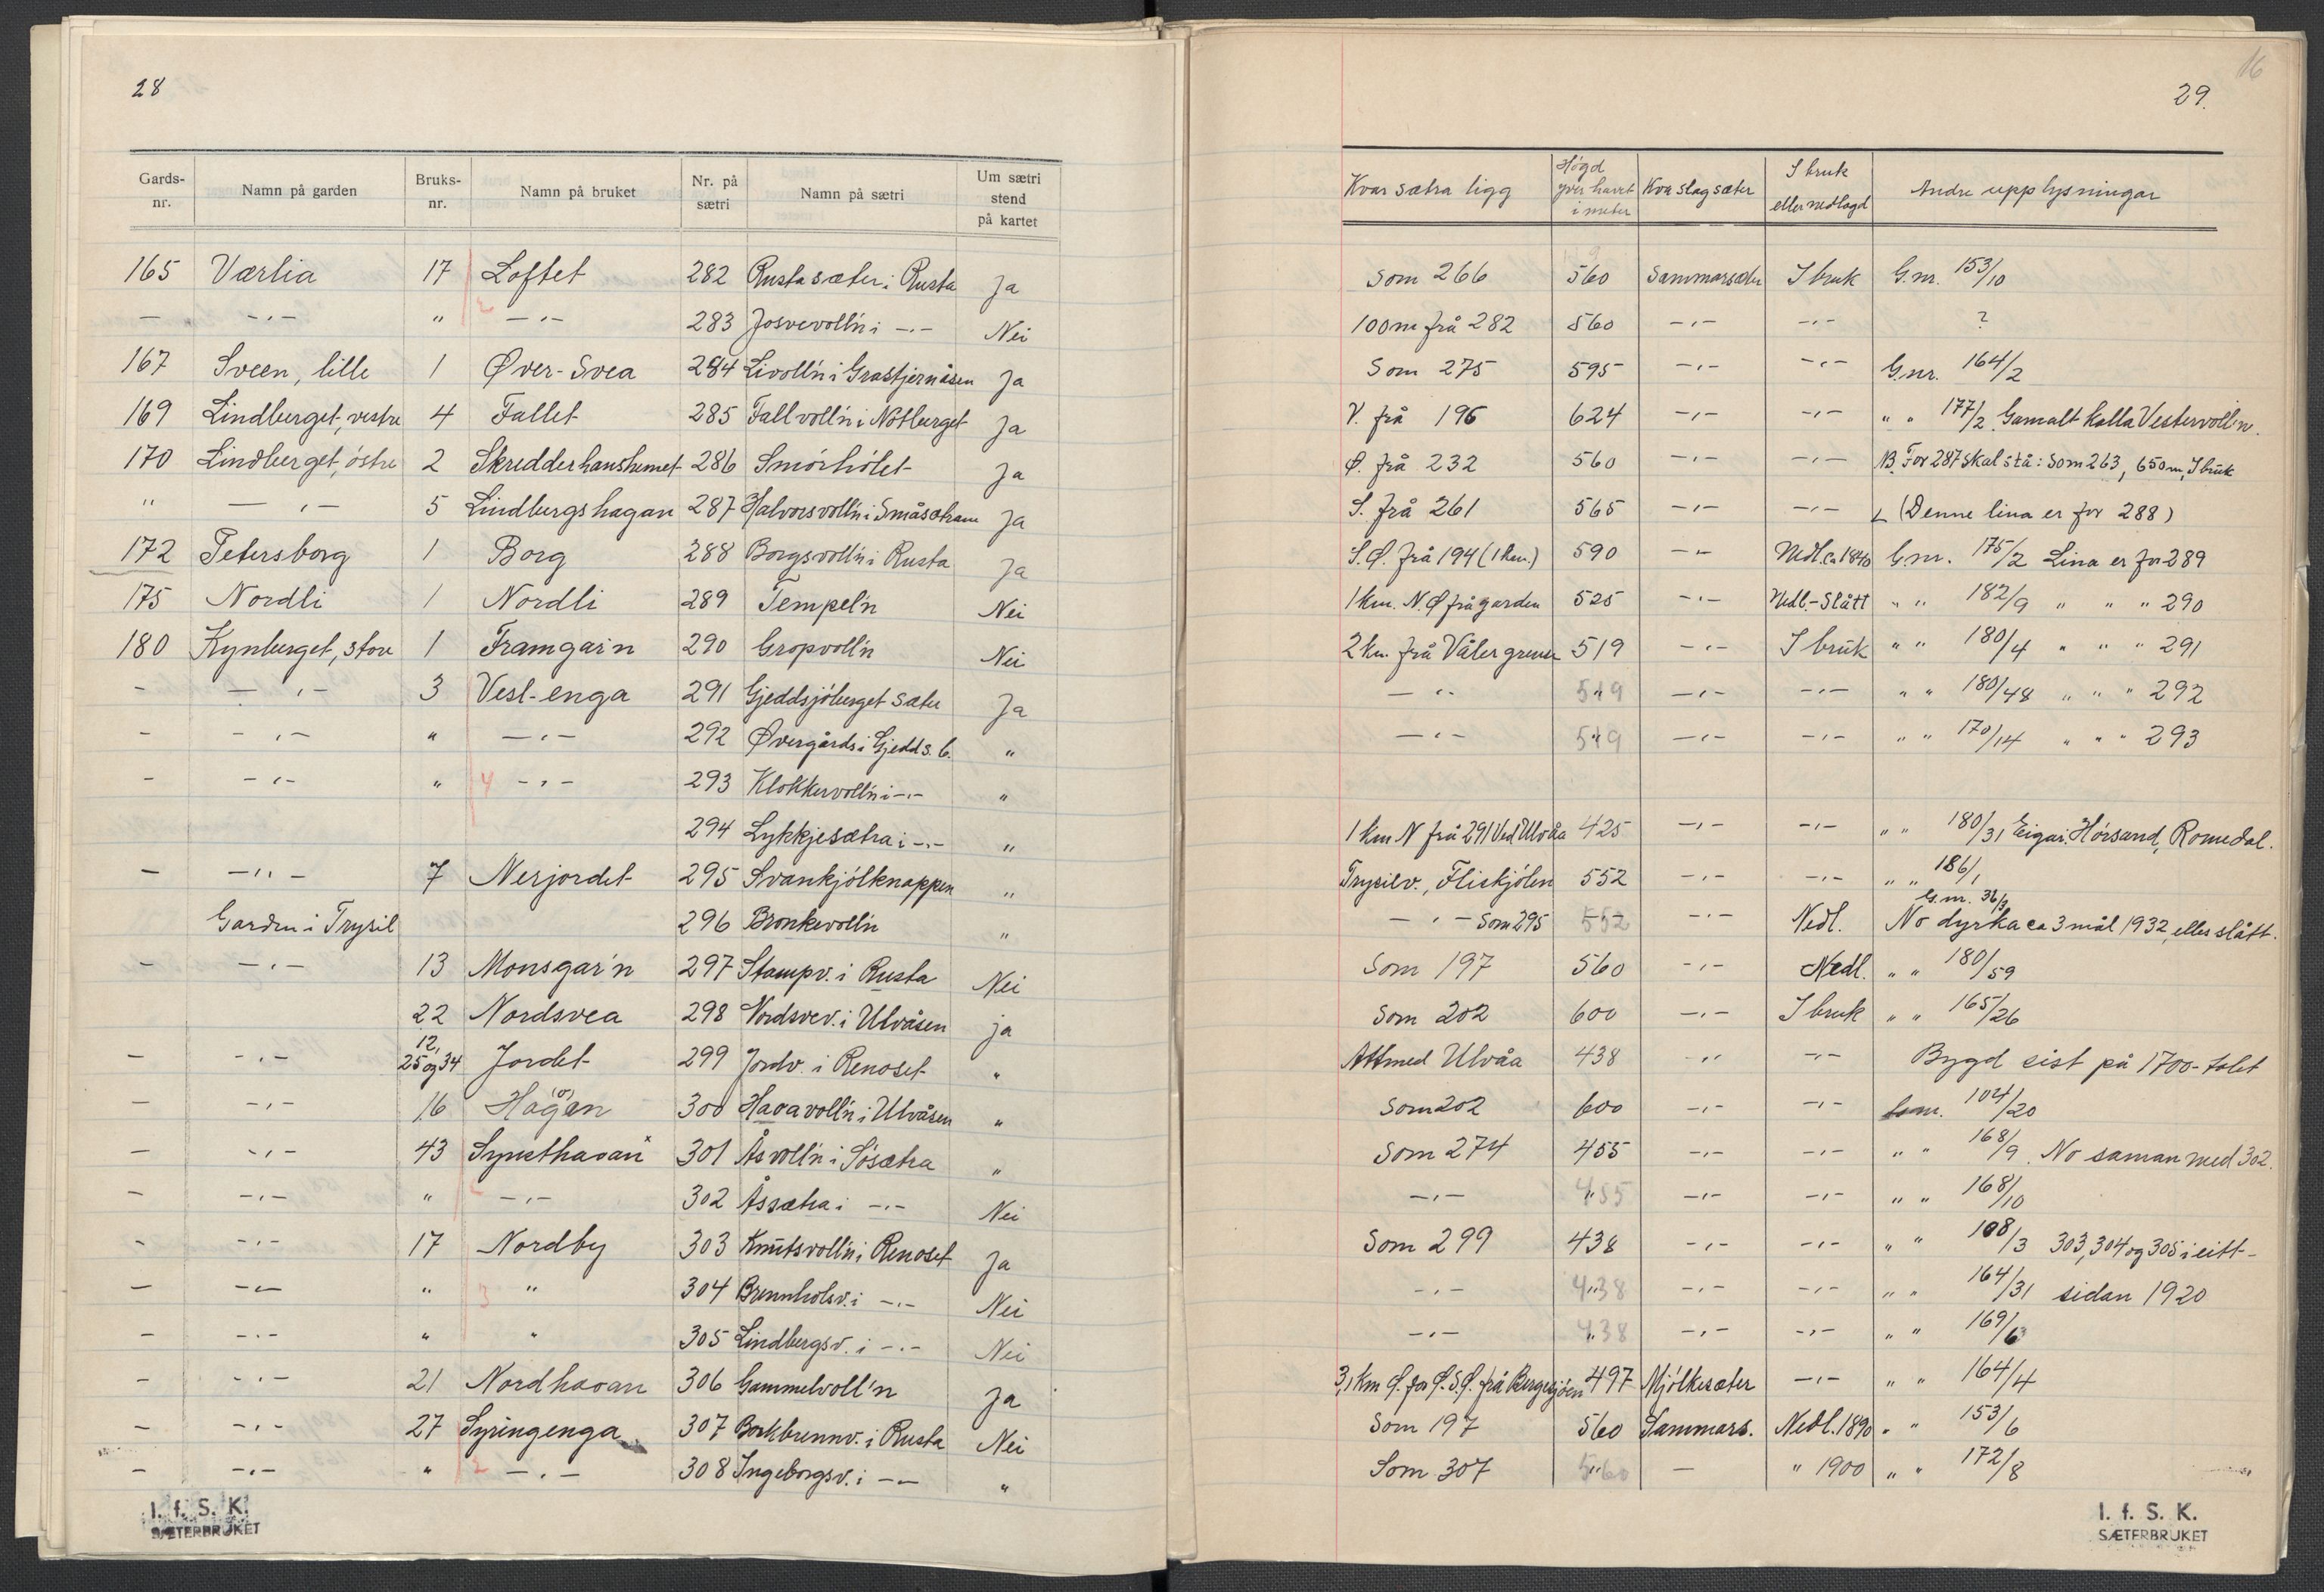 28
Gards-nr. Namn på garden Bruks-nr. Namn på bruket Nr. på sætri Namn på sætri Um sætri stend på kartet
165 Værlia 17 Loftet 282 Rustasæter i Rusta Ja
— -"- " -"- 283 Josvevoll'n i -"- Nei
167 Sveen, lille 1 Øver-Svea 284 Livoll'n i Grastjernåsen Ja
169 Lindberget, vestre 4 Fallet 285 Fallvoll'n i Nötberget Ja
170 Lindberget, östre 2 Skredderhanshemet 286 Smörhólet Ja
" -"- 5 Lindbergshagan 287 Halvorsvoll'n i Småsætrane Ja
172 Petersborg 1 Borg 288 Borgsvoll'n i Rusta Ja
175 Nordli 1 Nordli 289 Tempel'n Nei
180 Kynberget, store 1 Framgar'n 290 Gropvoll'n Nei
- -"- 3 Vesl-enga 291 Gjeddsjöberget sæter Ja
- -"- " -"- 292 Øvergårds i Gjedds.b. "
- -"- " 4 -"- 293 Klokkervoll'n i -"- "
294 Lykkjesætra i -"- "
- -"- 7 Nerjordet 295 Svankjölknappen "
Garden i Trysil 296 Bronkevoll'n "
- -"- 13 Monsgar'n 297 Stampv. i Rusta Nei
22 Nordsvea 298 Nordsvev. i Ulvåsen ja
- -"- 12, 25 og 34 Jordet 299 Jordv. i Renoset "
- -"- 16 Hagen (o) 300 Havavoll'n i Ulvåsen "
- -"- 43 Synsthaoan x 301 Åsvoll'n i Sösætra "
- -"- " 2 -"- 302 Åssætra i -"- Nei
- -"- 17 Nordby 303 Knutsvoll'n i Renoset Ja
- -"- " 3 " 304 Brennholsv. i -"- Nei
- -"- " " 305 Lindbergsv. i -"- Nei
- -"- 21 Nordhaoan 306 Gammelvoll'n Ja
- -"- 27 Syringenga 307 Borkbrennv. i Rusta Nei
- -"- " 2 -"- 308 Ingeborgsv. i -"- "
I. f. S. K.
SÆTERBRUKET
16
29.
Kvar sætra ligg Högd yver havet i meter Kva slag sæter I bruk eller nedlagd Andre upplysningar
Som 266 560 Sammarsæter I bruk G.nr. 153/10
100 m frå 282 560 -"- -"- ?
Som 275 595 -"- -"- G.nr. 164/2
V. frå 196 624 -"- -"- " " 177/2 Gamalt kalla Vestervoll'n.
Ø. frå 232 560 -"- -"- NB. For 287 skal stå: Som 263, 650 m, I bruk
S. frå 261 565 -"- -"- (Denne lina er for 288)
S.Ø. frå 194 (1 km.) 590 -"- Nedl. ca 1840 G.nr. 175/2 Lina er for 289
1 km. N.Ø frå garden 525 -"- Nedl.-Slått " " 182/9 " " " 290
2 km. frå Våler grense 519 -"- I bruk " " 180/4 " " " 291
-"- 519 -"- -"- " " 180/48 " " " 292
-"- 519 -"- -"- " " 170/14 " " " 293
1 km N frå 291 Ved Ulvåa 425 -"- -"- " " 180/31 Eigar: Hörsand, Romedal.
Trysilv., Fliskjölen 552 -"- -"- " " 186/1
-"- Som 295 552 -"- Nedl. G.nr. 36/3 No dyrka ca 3 mål 1932, elles slått.
Som 197 560 -"- Nedl. " " 180/59
Som 202 600 -"- I bruk " " 165/26
Attmed Ulvåa 438 -"- -"- Bygd sist på 1700-talet
Som 202 600 -"- -"- G.nr. 104/20
Som 274 455 -"- -"- " " 168/9. No saman med 302.
-"- 455 -"- -"- " " 168/10
Som 299 438 -"- -"- " " 108/3 303, 304 og 305 i eitt-
-"- 438 -"- -"- " " 164/31 sidan 1920
-"- 438 -"- -"- " " 169/6
3,1 km Ø. for Ø.S.Ø. frå Bergesjöen 497 Mjölkesæter -"- " " 164/4
Som 197 560 Sammars. Nedl. 1890 " " 153/6
Som 307 560 — " 1900 " " 172/8
I. f. S. K.
SÆTERBRUKET